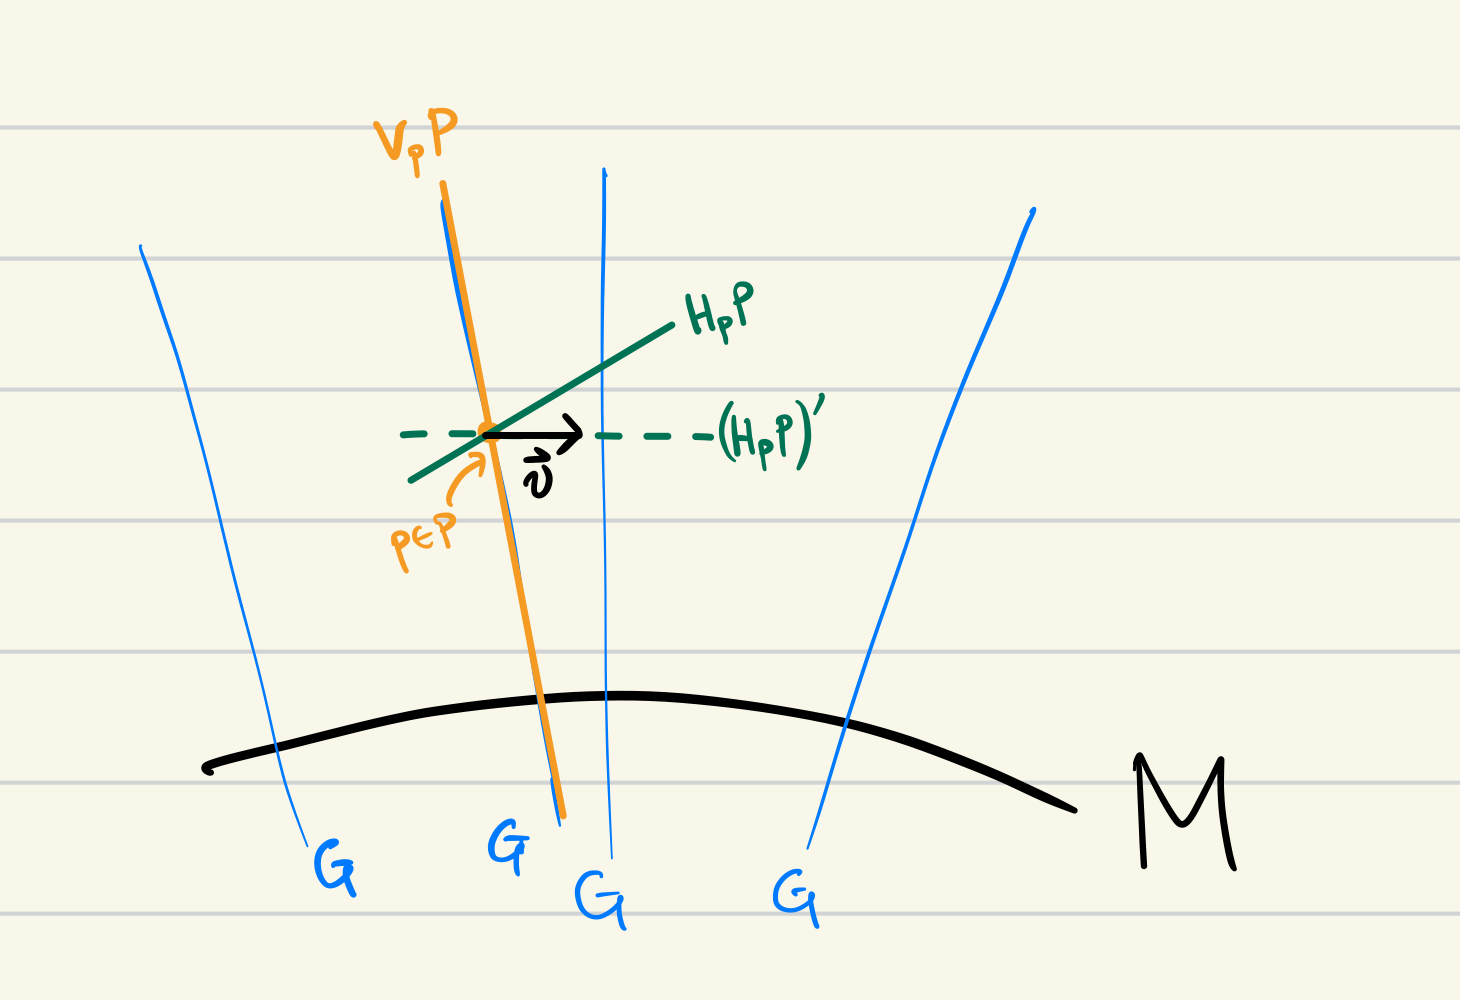 VₚP
HₚP
(HₚP)′
v⃗
p∈P
M
G
G
G
G